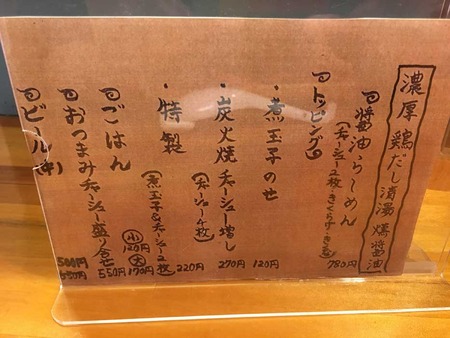 濃厚鶏だし清湯 燻醤油
醤油らーめん 780円
(チャーシュー2枚・きくらげ・
トッピング
・煮玉子のせ 120円
・炭火焼チャーシュー増し 270円
(チャーシュー4枚)
・特製 220円
(煮玉子&チャーシュー2枚)
ごはん 小 120円 大 170円
おつまみチャーシュー盛り合せ 550円
ビール(中) 500円
550円